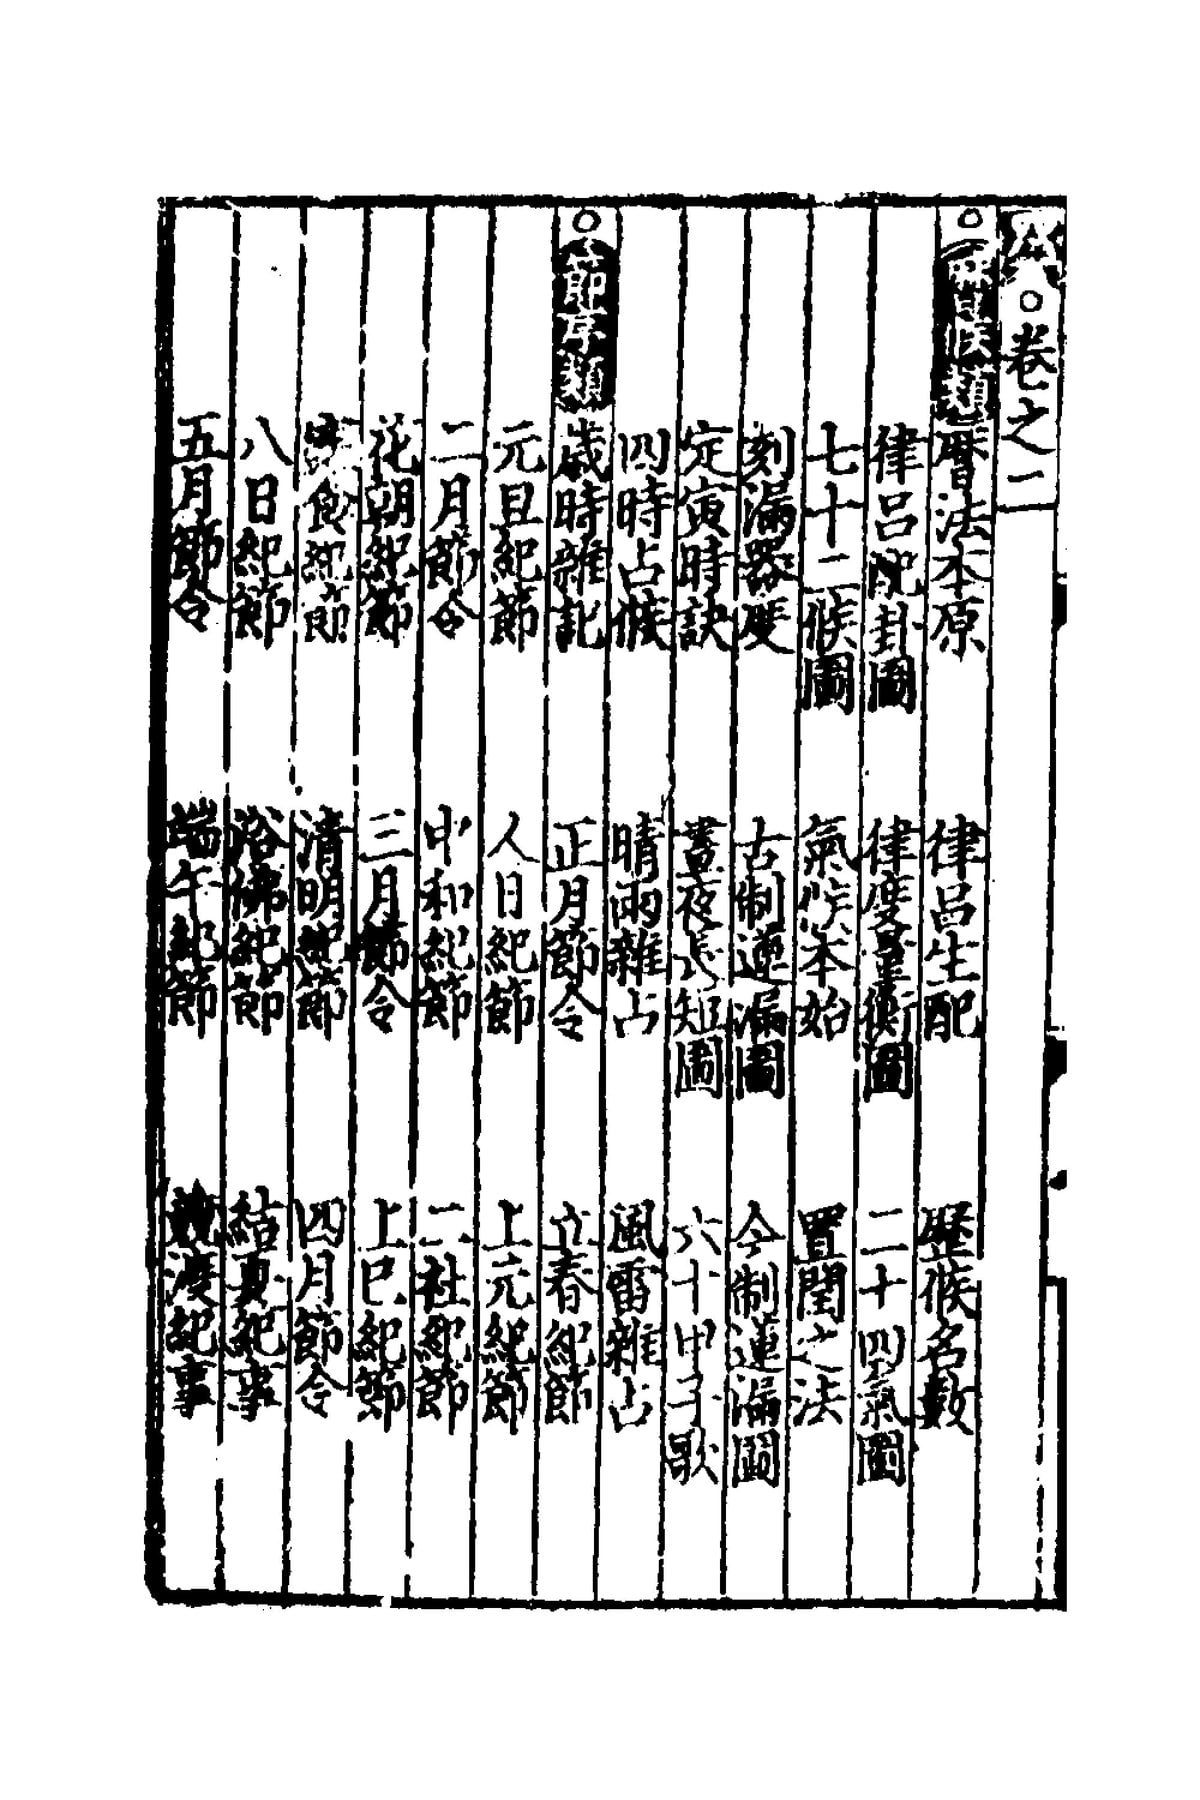 ○卷之一
○曆候類 曆法本原 律呂生配 歷候名數
律呂配卦圖 律度量衡圖 二十四氣圖
七十二候圖 氣候本始 置閏之法
刻漏器度 古制蓮漏圖 今制蓮漏圖
定寅時訣 晝夜長短圖 六十甲子歌
四時占候 晴雨雜占 風雷雜占
○節序類 歲時雜記 正月節令 立春紀節
元旦紀節 人日紀節 上元紀節
二月節令 中和紀節 二社紀節
花朝紀節 三月節令 上巳紀節
寒食紀節 清明紀節 四月節令
八日紀節 浴佛紀節 結夏紀事
五月節令 端午紀節 競渡紀事